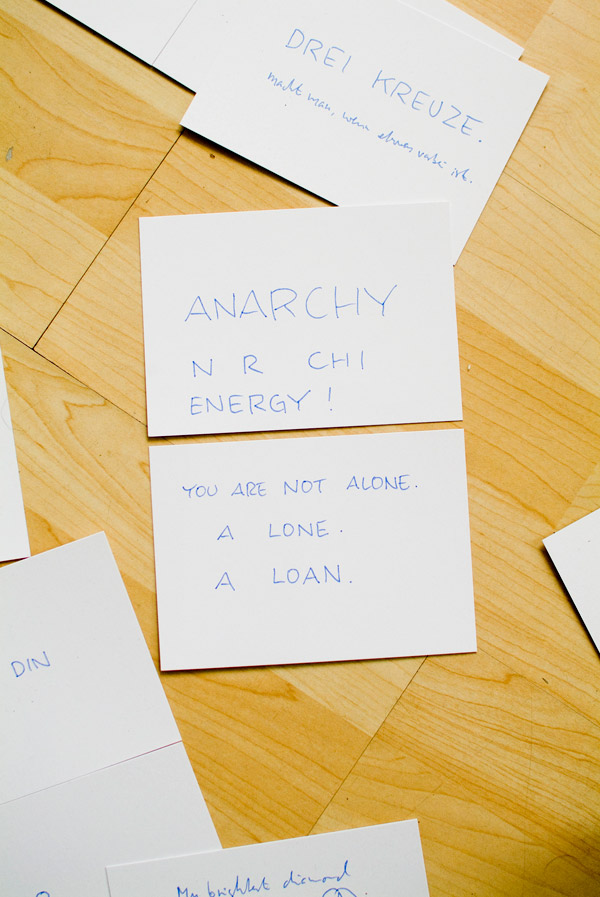 DREI KREUZE.
macht man, wenn etwas vorbei ist.
ANARCHY
N R CHI
ENERGY!
YOU ARE NOT ALONE.
A LONE.
A LOAN.
DIN
My brightest diamond